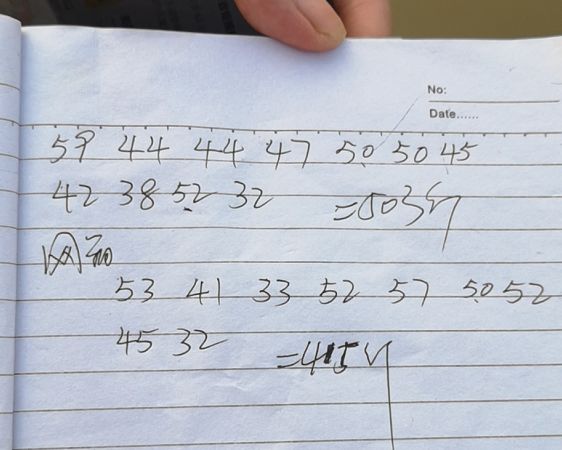 No:
Date......
59 44 44 47 50 50 45
42 38 52 32 =503斤
53 41 33 52 57 50 52
45 32 =415